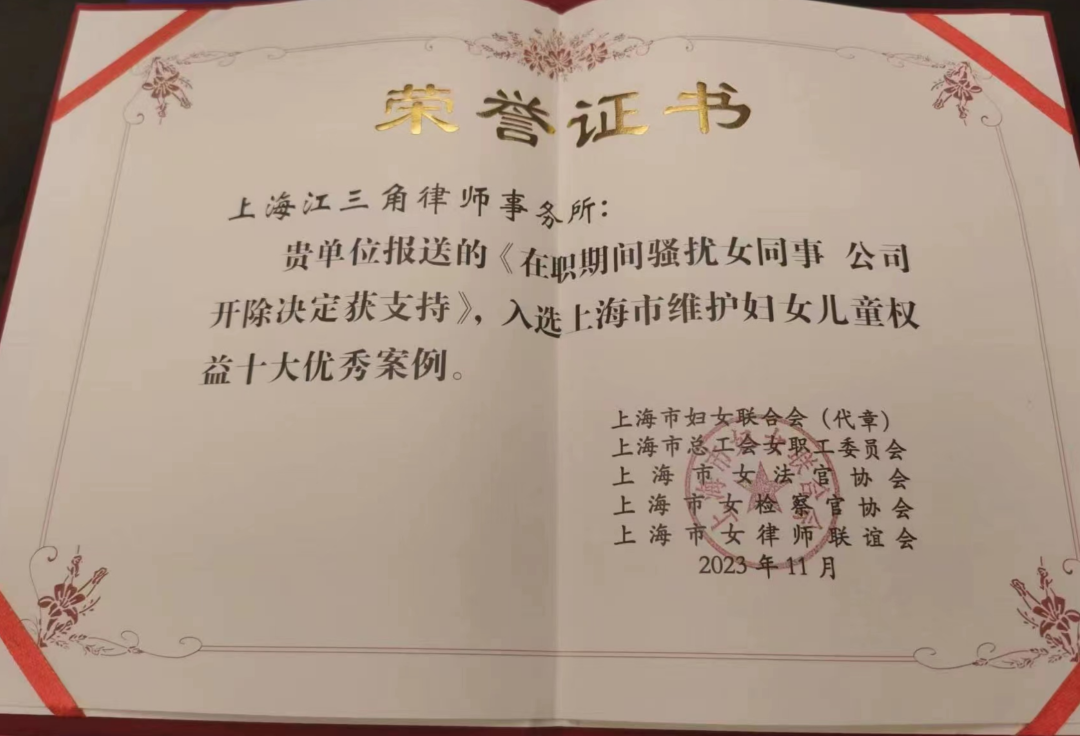 荣誉证书
上海江三角律师事务所：
贵单位报送的《在职期间骚扰女同事 公司
开除决定获支持》，入选上海市维护妇女儿童权
益十大优秀案例。
上海市妇女联合会（代章）
上海市总工会女职工委员会
上海市女法官协会
上海市女检察官协会
上海市女律师联谊会
2023年11月
上海市妇女联合会